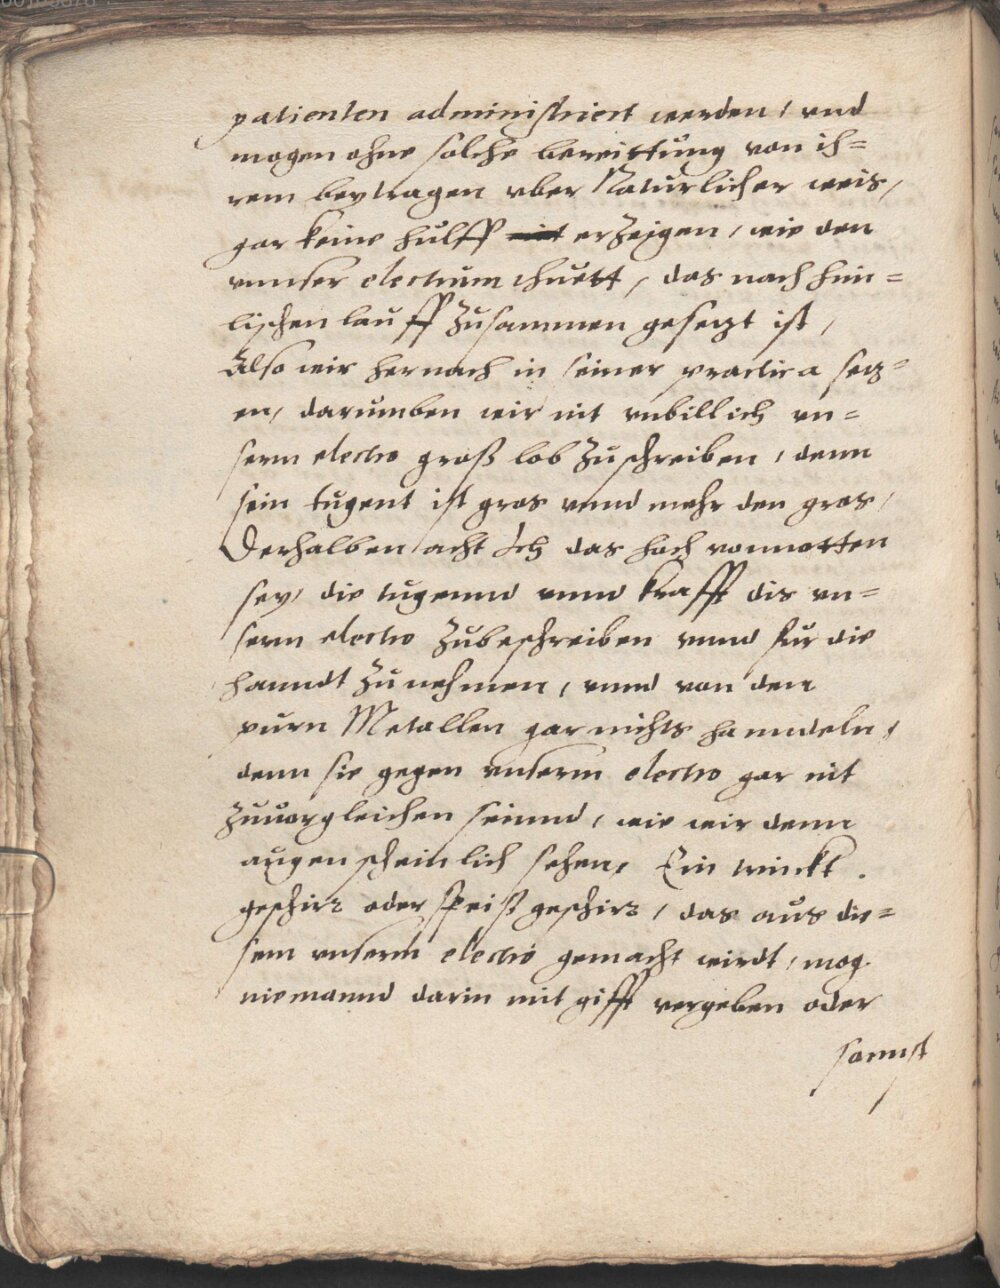 patienten administriert werden / vnd
mogen ohne solche bereittung von ih=
rem beytragen vber Naturlicher weis,
gar keine hulff erzeigen, wie den
vnnser electrum thuett, das nach him=
lischen lauff zusammen gesezt ist,
Also wir hernach in seiner practica sez=
en, darumben wir nit vnbillich vn=
serm electro groß lob zuschreiben, denn
sein tugent ist gros vnnd mehr den gros,
Derhalben acht Ich das hoch vonnotten
sey, die tugennd vnnd krafft dis vn=
serm electro zubeschreiben vnnd fur die
hanndt zu nehmen, vnnd von den
purn Metallen gar nichts hanndeln,
denn sie gegen vnserm electro gar nit
zuuorgleichen seinnd, wie wir denn
augenscheinlich sehen, Ein trinckt
geschirr oder speißgeschirr, das aus die=
sem vnserm electro gemacht wirdt, mog
niemannd darin mit gifft vergeben oder
sonnst